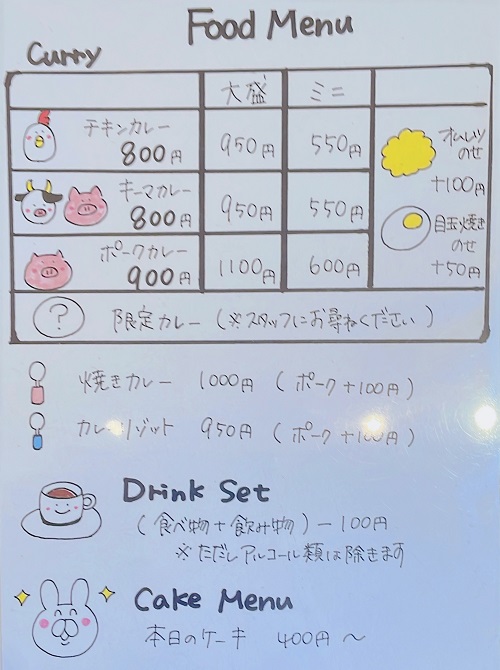 Food Menu
Curry
大盛 ミニ
チキンカレー
800円 950円 550円
オムレツ
のせ
+100円
キーマカレー
800円 950円 550円
目玉焼き
のせ
+50円
ポークカレー
900円 1100円 600円
? 限定カレー (※スタッフにお尋ねください)
焼きカレー 1000円 (ポーク+100円)
カレーリゾット 950円 (ポーク+100円)
Drink Set
(食べ物+飲み物)-100円
※ただしアルコール類は除きます
Cake Menu
本日のケーキ 400円~